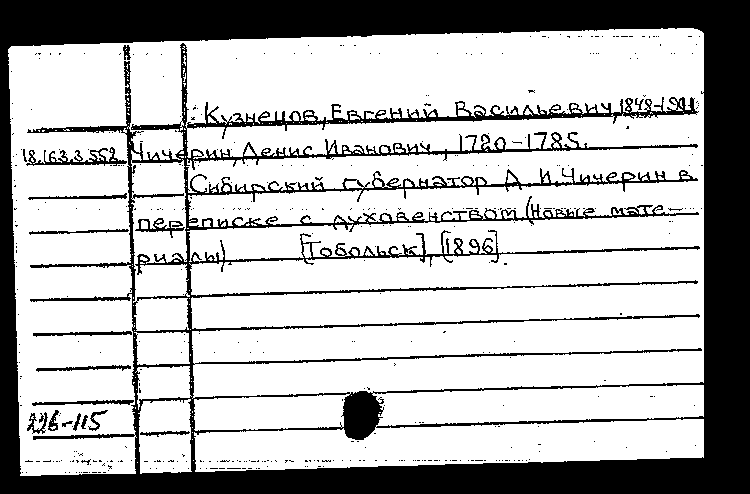 : Кузнецов, Евгений Васильевич, 1848-1911
18.163.3.552 Чичерин, Денис Иванович, 1720-1785.
Сибирский губернатор Д. И. Чичерин в
переписке с духовенством (Новые мате-
риалы). [Тобольск], [1896].
226-115